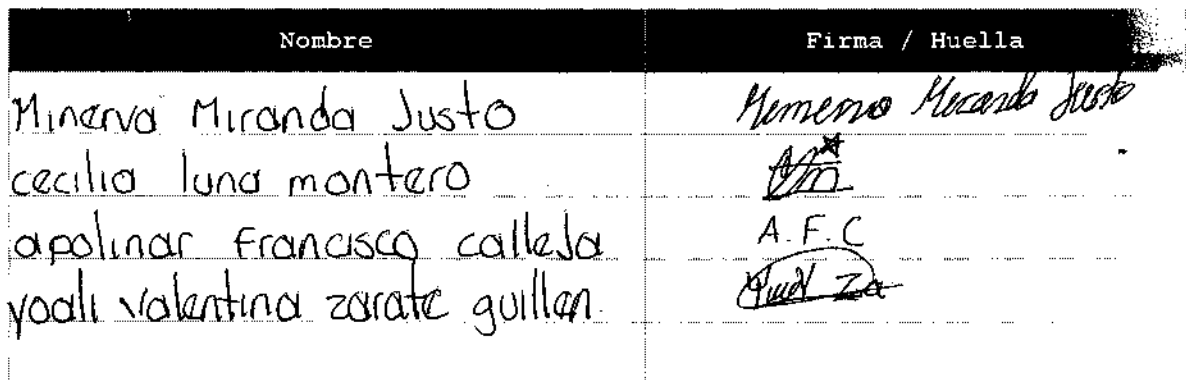 Nombre Firma / Huella
Minerva Miranda Justo Miranda Justo
cecilia luna montero
apolinar Francisco calleja A.F.C
yoali valentina zarate guillen Za